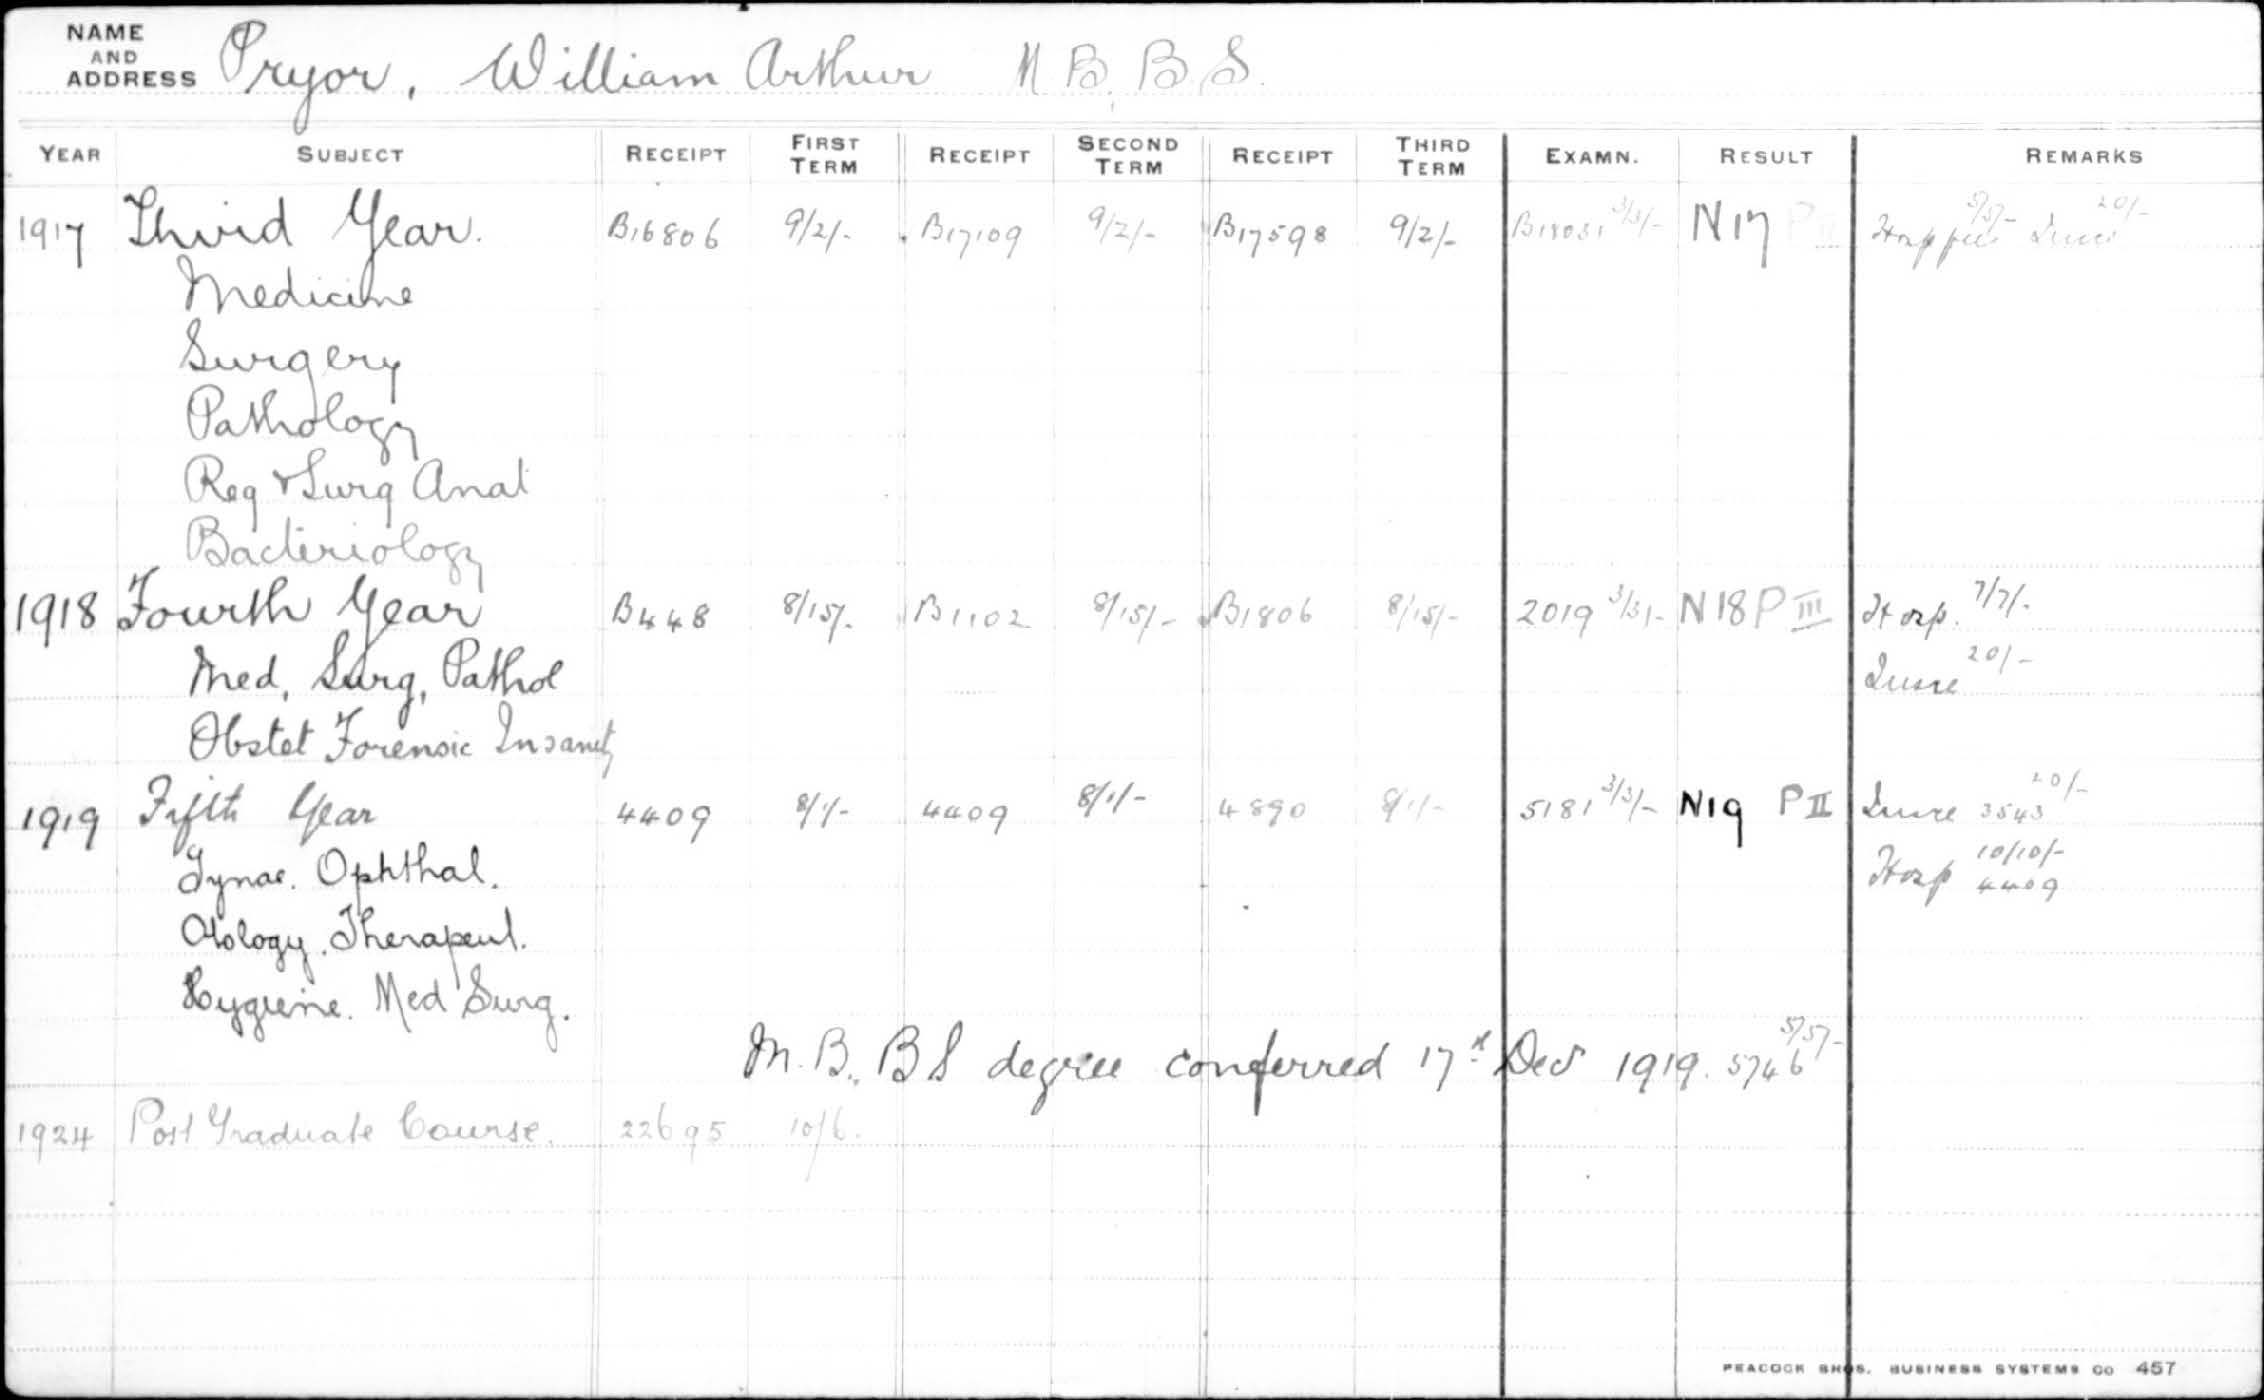 NAME AND ADDRESS Pryor, William Arthur M.B., B.S.
YEAR SUBJECT RECEIPT FIRST TERM RECEIPT SECOND TERM RECEIPT THIRD TERM EXAMN. RESULT REMARKS
1917 Third Year. B16806 9/2/- B17109 9/2/- B17598 9/2/- 3/3/- N17 P Hosp fee 5/5/- 20/-
Medicine
Surgery
Pathology
Reg & Surg Anat
Bacteriology
1918 Fourth Year B448 8/15/- B1102 8/15/- B1806 8/15/- 2019 3/3/- N18 P III Hosp. 7/7/-
Med, Surg, Pathol 20/-
Obstet Forensic Insanity
1919 Fifth Year 4409 8/1/- 4409 8/1/- 4890 8/1/- 5181 3/3/- N19 P II 3543 20/-
Gynae. Ophthal. Hosp 10/10/- 4409
Otology. Therapeut.
Hygiene. Med Surg.
M.B., B S degree conferred 17th Dec 1919. 5746 5/5/-
1924 Post Graduate Course. 22695 10/6.
PEACOCK BROS. BUSINESS SYSTEMS CO 457